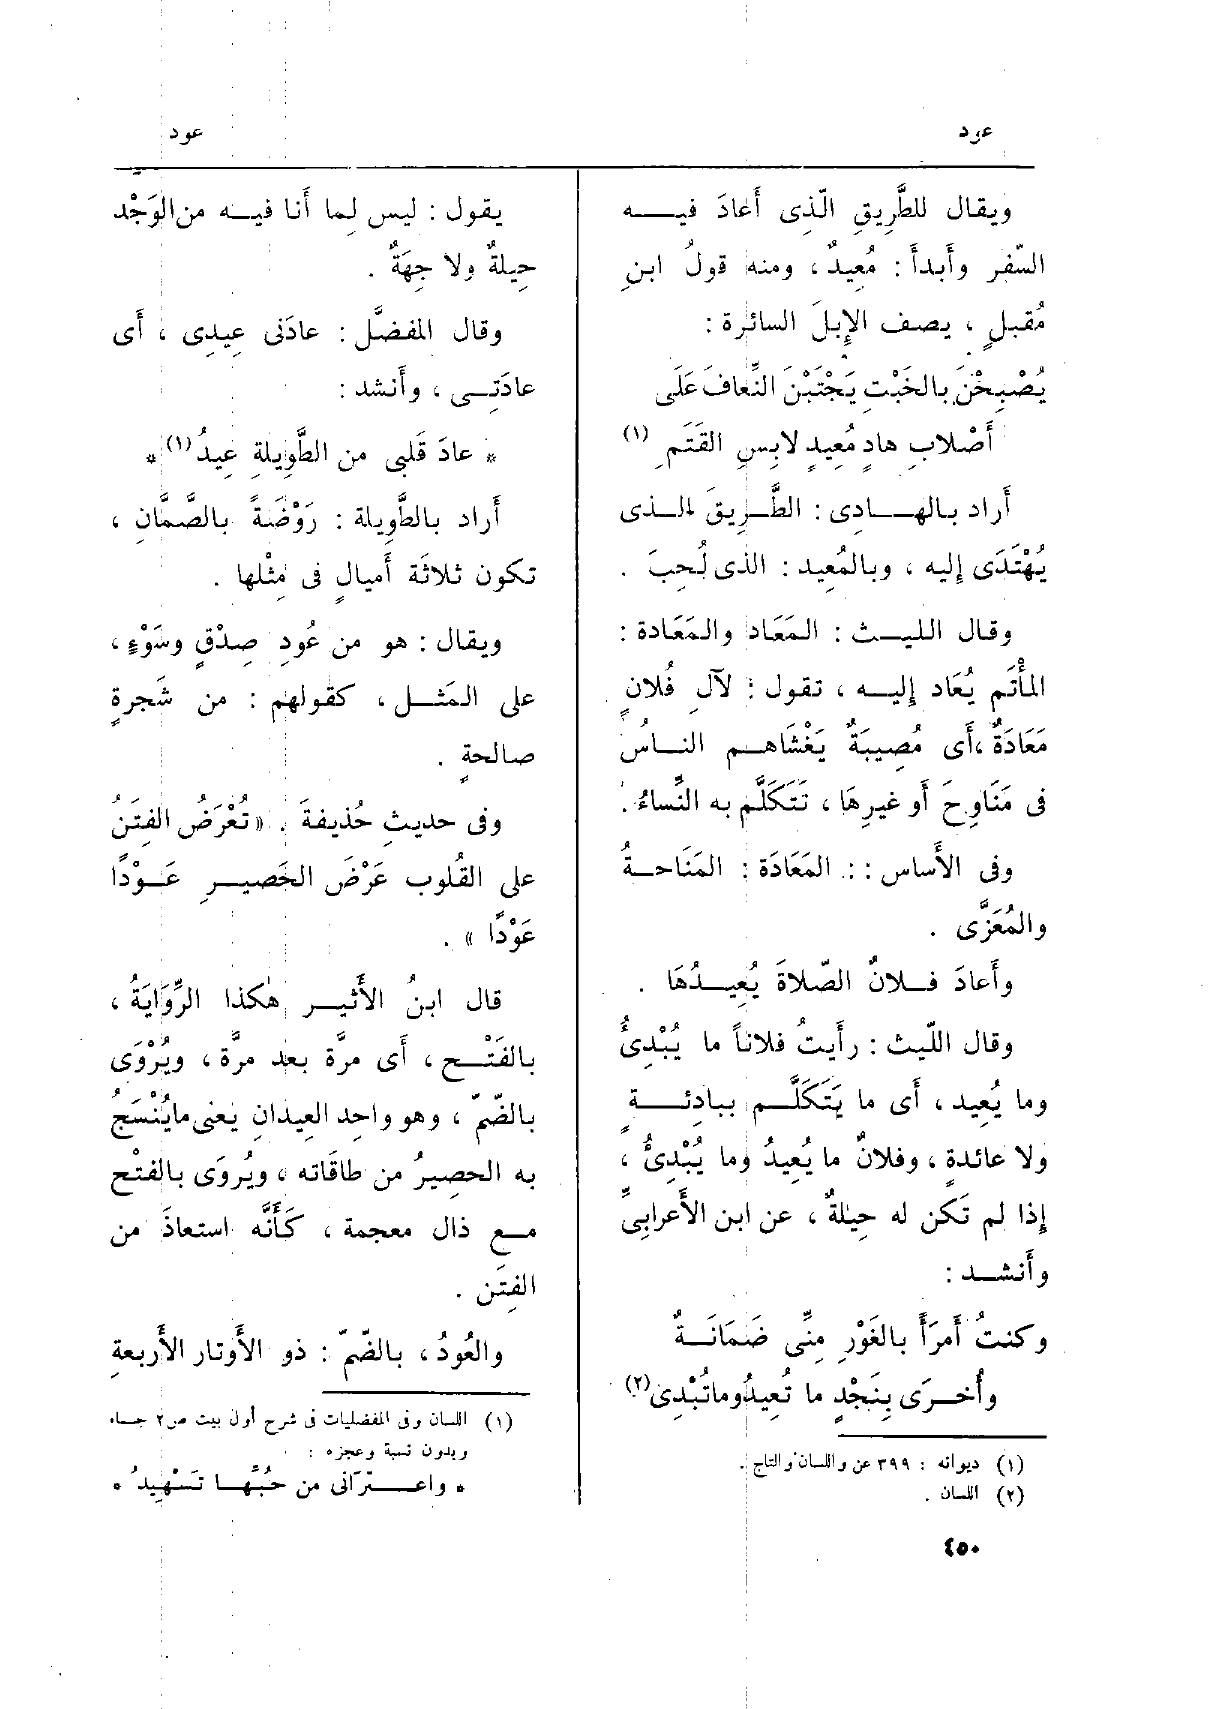 عود
عود
ويقال للطَّرِيقِ الّذِى أَعَادَ فيـــه
السَّفْر وأَبدأَ : مُعِيدٌ ، ومنه قولُ ابنِ
مُقبلٍ ، يصف الإِبلَ السائرة :
يُصْبِحْنَ بالخَبْتِ يَجْتَبْنَ النِّعَافَ عَلَى
أَصْلابِ هادٍ مُعِيدٍ لابِسِ القَتَمِ (١)
أَراد بـالهـــادِى : الطَّـرِيقَ الـذى
يُهْتَدَى إِليه ، وبالمُعِيد : الذى لُحِبَ .
وقال الليـــث : المَعَاد والمَعَادة :
المأْتَم يُعَاد إِليـــه ، تقول : لآلِ فُلانٍ
مَعَادَةٌ ،أَى مُصِيبَةٌ يَغْشَاهـــم النـاسُ
فى مَنَاوِحَ أَو غيرِهَا ، تَتَكَلَّم به النِّساءُ .
وفى الأَساس : : المَعَادَة : المَنَاحـةُ
والمُعَزَّى .
وأَعادَ فـــلانٌ الصَّلاةَ يُعِيـــدُهَا .
وقال اللّيث : رأَيتُ فلاناً ما يُبْدِئُ
وما يُعِيد ، أَى ما يَتَكَلَّـــم ببادِئـــةٍ
ولا عائدةٍ ، وفلانٌ ما يُعِيدُ وما يُبْدِئُ ،
إِذا لم تَكن له حِيلةٌ ، عن ابن الأَعرابىِّ
وأَنشـــد :
وكنتُ أمرَأً بالغَوْرِ مِنِّى ضَمَانَـــةٌ
وأُخـــرَى بِنَجْدٍ ما تُعِيدُوماتُبْدِى(٢)
(١) ديوانه : ٣٩٩ عن واللسان والتاج .
(٢) اللسان .
يقول : ليس لِما أَنا فيـــه من الوَجْد
حِيلةٌ ولا جِهَةٌ .
وقال المفضَّل : عادَنى عِيدِى ، أَى
عادَتِـــى ، وأَنشد :
* عادَ قَلبِى من الطَّوِيلةِ عِيدُ (١) *
أَراد بـالطَّوِيلة : رَوْضَةً بالصَّمَّانِ ،
تكون ثلاثَة أَميالٍ فى مِثْلها .
ويقال : هو من عُودِ صِدْقٍ وسَوْءٍ ،
على المَثـــل ، كقولهم : من شَجرةٍ
صالحةٍ .
وفى حديثِ حُذيفةَ . « تُعْرَضُ الفِتَنُ
على القُلوب عَرْضَ الحَصِيـــرِ عَـوْدًا
عَوْدًا » .
قال ابنُ الأَثيـــر هٰكذا الرِّوَايَةُ ،
بالفَتْـــح ، أَى مرَّة بعد مرَّة ، ويُرْوَى
بالضَّمّ ، وهو واحِد العِيدانِ يَعنى مايُنْسَجُ
به الحصِيرُ من طاقَاته ، ويُروَى بالفتْح
مـــع ذال معجمة ، كَأَنَّه استعاذَ من
الفِتَن .
والعُودُ ، بالضَّمّ : ذو الأَوتار الأَربعةِ
(١) اللسان وفى المفضليات فى شرح أول بيت ص٢ جـاء
وبدون نسبة وعجزه :
* واعـــترَانى من حُبِّهـــا تَسْهِيدُ *
٤٥٠